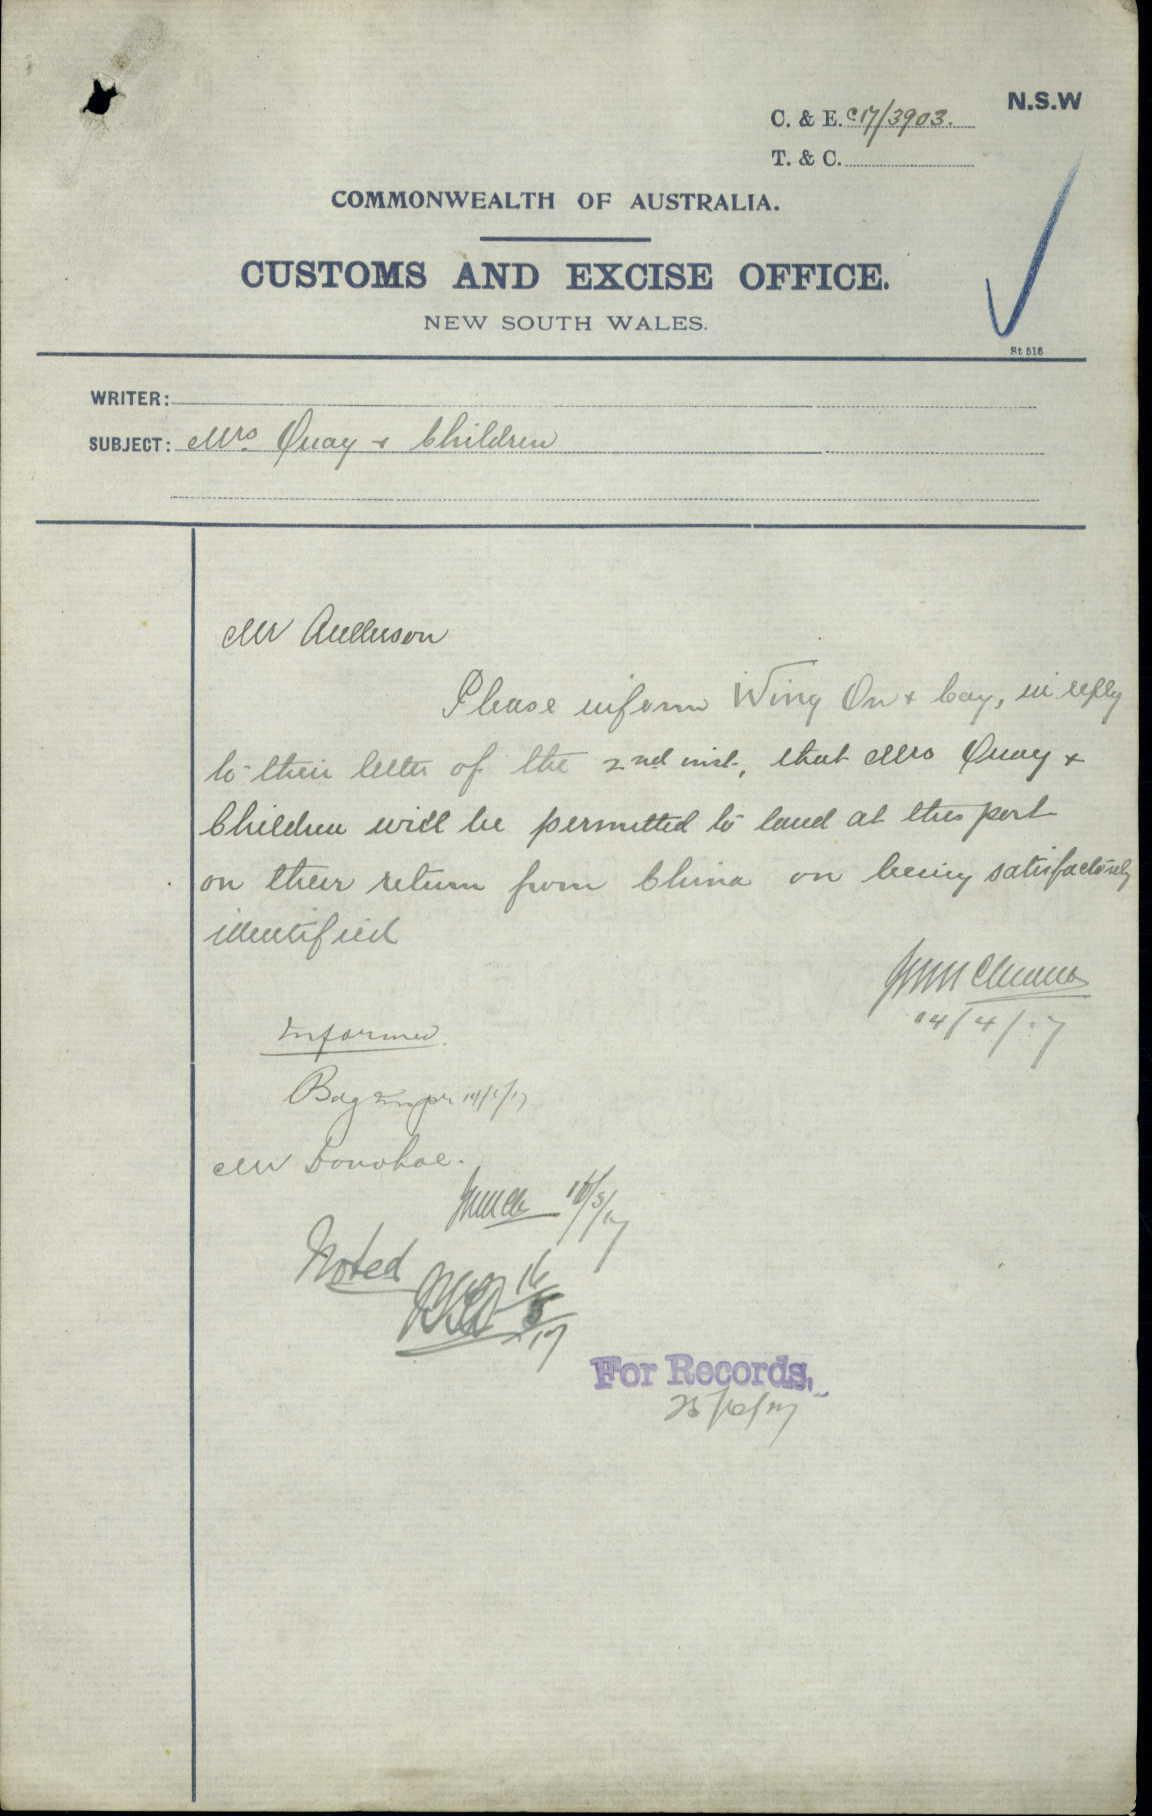 N.S.W
C. & E. C17/3903.
T. & C.
COMMONWEALTH OF AUSTRALIA.
CUSTOMS AND EXCISE OFFICE.
NEW SOUTH WALES.
St 516
WRITER:
SUBJECT: Mrs. Quay & Children
Mr Anderson
Please inform Wing On & Coy, in reply
to their letter of the 2nd inst, that Mrs Quay &
Children will be permitted to land at this port
on their return from China on being satisfactorily
identified
Informed.
Mr Donohoe.
Noted
16
5
17
For Records.